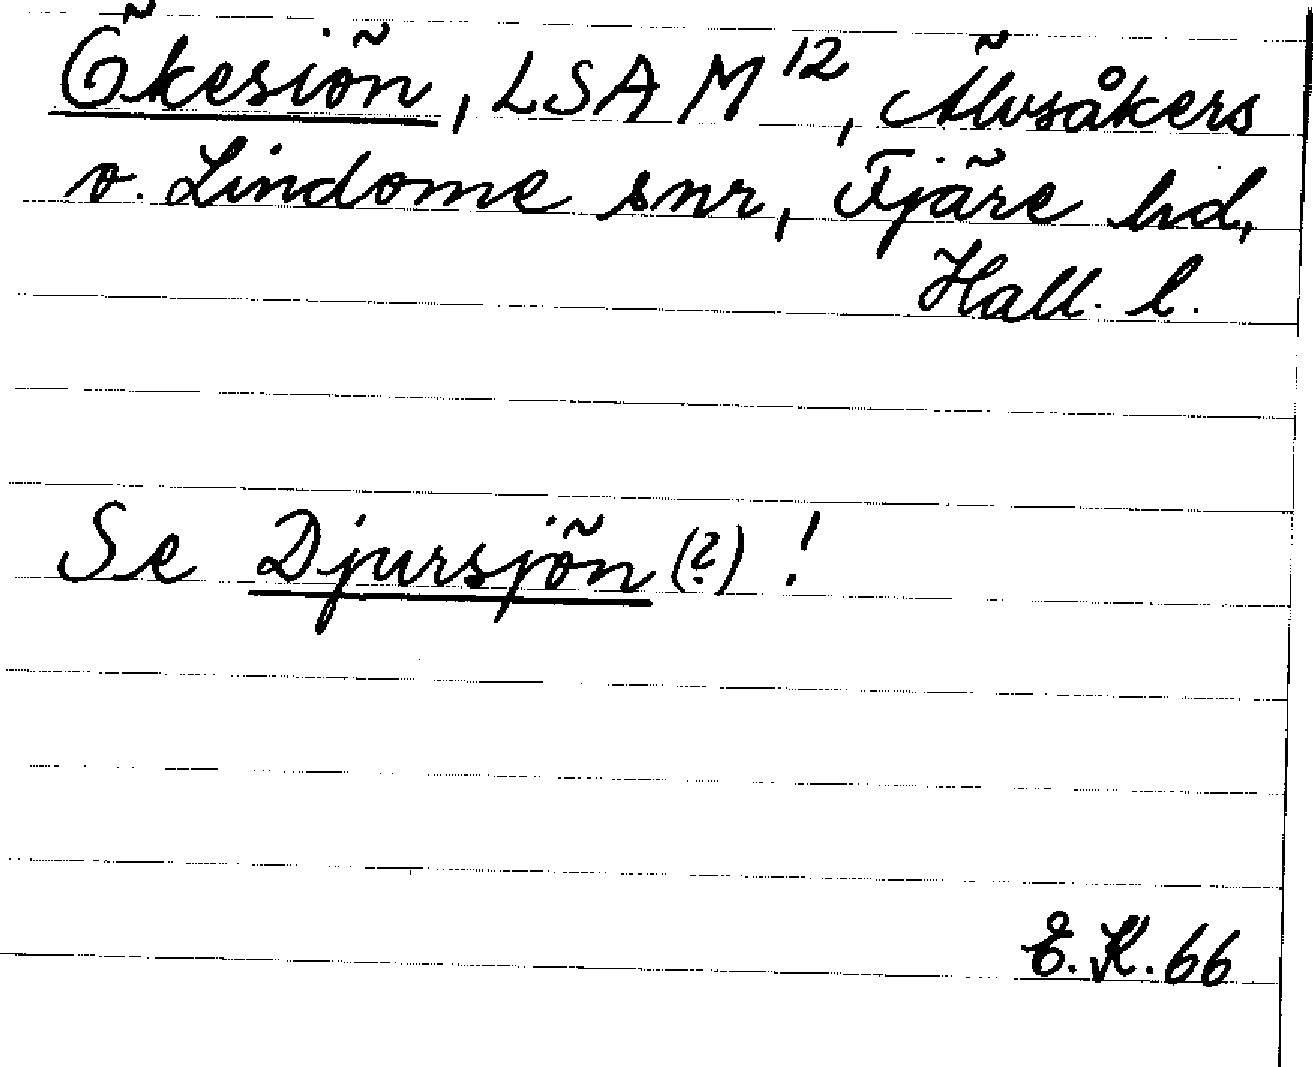 Ökesiön, LSA M 12, Älvsåkers
o. Lindome snr, Fjäre hd,
Hall. l.
Se Djursjön (?) !
E.K. 66